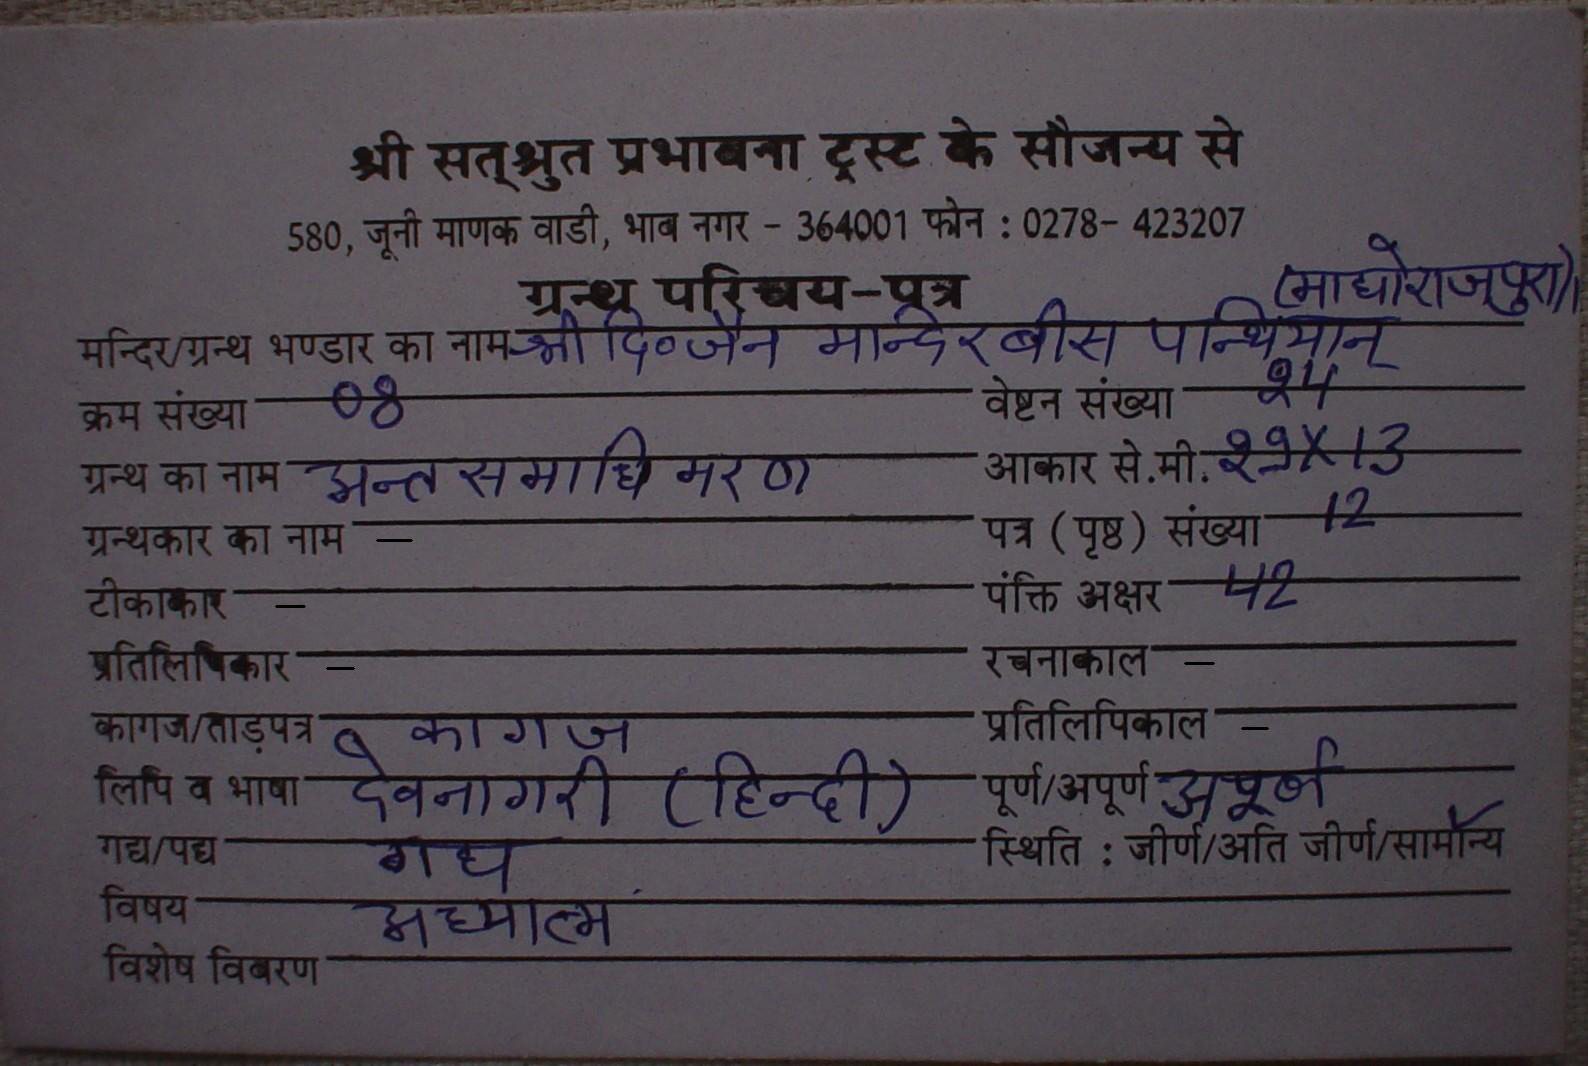 श्री सत्श्रुत प्रभावना ट्रस्ट के सौजन्य से
580, जूनी माणक वाडी, भाव नगर - 364001 फोन : 0278- 423207
ग्रन्थ परिचय-पत्र (माधोराजपुरा)
मन्दिर/ग्रन्थ भण्डार का नाम श्री दि० जैन मन्दिर बीस पन्थियान्
क्रम संख्या 08 वेष्टन संख्या
ग्रन्थ का नाम अन्त समाधि मरण आकार से.मी. X 13
ग्रन्थकार का नाम — पत्र (पृष्ठ) संख्या 12
टीकाकार — पंक्ति अक्षर 42
प्रतिलिपिकार — रचनाकाल —
कागज/ताड़पत्र कागज प्रतिलिपिकाल —
लिपि व भाषा देवनागरी (हिन्दी) पूर्ण/अपूर्ण अपूर्ण
गद्य/पद्य गद्य स्थिति : जीर्ण/अति जीर्ण/सामान्य ✓
विषय अध्यात्म
विशेष विवरण